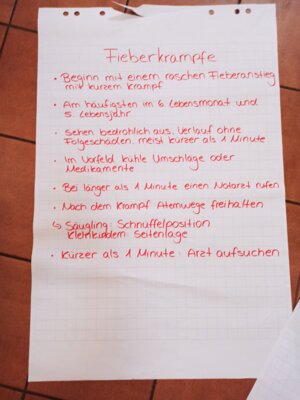 Fieberkrämpfe
• Beginn mit einem raschen Fieberanstieg
mit kurzem Krampf
• Am häufigsten im 6 Lebensmonat und
5. Lebensjahr
• Sehen bedrohlich aus, Verlauf ohne
Folgeschäden, meist kürzer als 1 Minute
• Im Vorfeld kühle Umschläge oder
Medikamente
• Bei länger als 1 Minute einen Notarzt rufen
• Nach dem Krampf Atemwege freihalten
↳ Säugling: Schnüffelposition
Kleinkindern: Seitenlage
• Kürzer als 1 Minute: Arzt aufsuchen